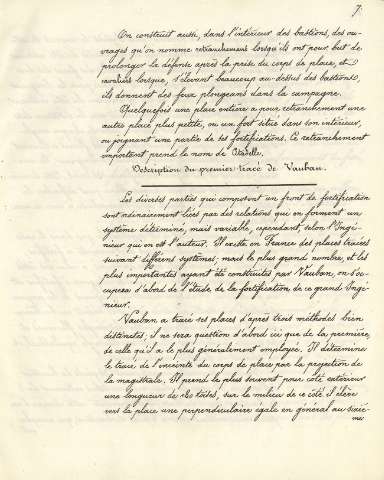 7.
On construit aussi, dans l'intérieur des bastions, des ou-
vrages qu'on nomme retranchements lorsqu'ils ont pour but de
prolonger la défense après la prise du corps de place, et
cavaliers lorsque, s'élevant beaucoup au-dessus des bastions,
ils donnent des feux plongeans dans la campagne.
Quelquefois une place entière a pour retranchement une
autre place plus petite, ou un fort situé dans son intérieur,
ou joignant une partie de ses fortifications. Ce retranchement
important prend le nom de Citadelle.
Description du premier tracé de Vauban.
Les diverses parties qui composent un front de fortification
sont ordinairement liées par des relations qui en forment un
système déterminé, mais variable, cependant, selon l'Ingé-
nieur qui en est l'auteur. Il existe en France des places tracées
suivant différens systèmes; mais le plus grand nombre, et les
plus importantes ayant été construites par Vauban, on s'oc-
cupera d'abord de l'étude de la fortification de ce grand Ingé-
nieur.
Vauban a tracé ses places d'après trois méthodes bien
distinctes; il ne sera question d'abord ici que de la première,
de celle qu'il a le plus généralement employée. Il détermine
le tracé de l'enceinte du corps de place par la projection de
la magistrale. Il prend le plus souvent pour côté extérieur
une longueur de 180 toises, sur le milieu de ce côté il élève
vers la place une perpendiculaire égale en général au sixiè-
me